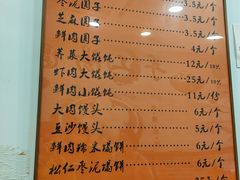 枣泥圆子 3.5元/个
芝麻圆子 3.5元/个
鲜肉圆子 3.5元/个
荠菜大馄饨 4元/个
虾肉大馄饨 12元/10个
鲜肉小馄饨 25元/10个
大肉馒头 11元/份
豆沙馒头 6元/个
鲜肉粽米塌饼 5元/个
松仁枣泥塌饼 6元/个
6元/个